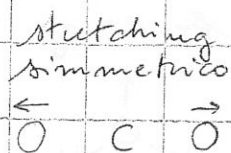 stretching
simmetrico
← →
O C O